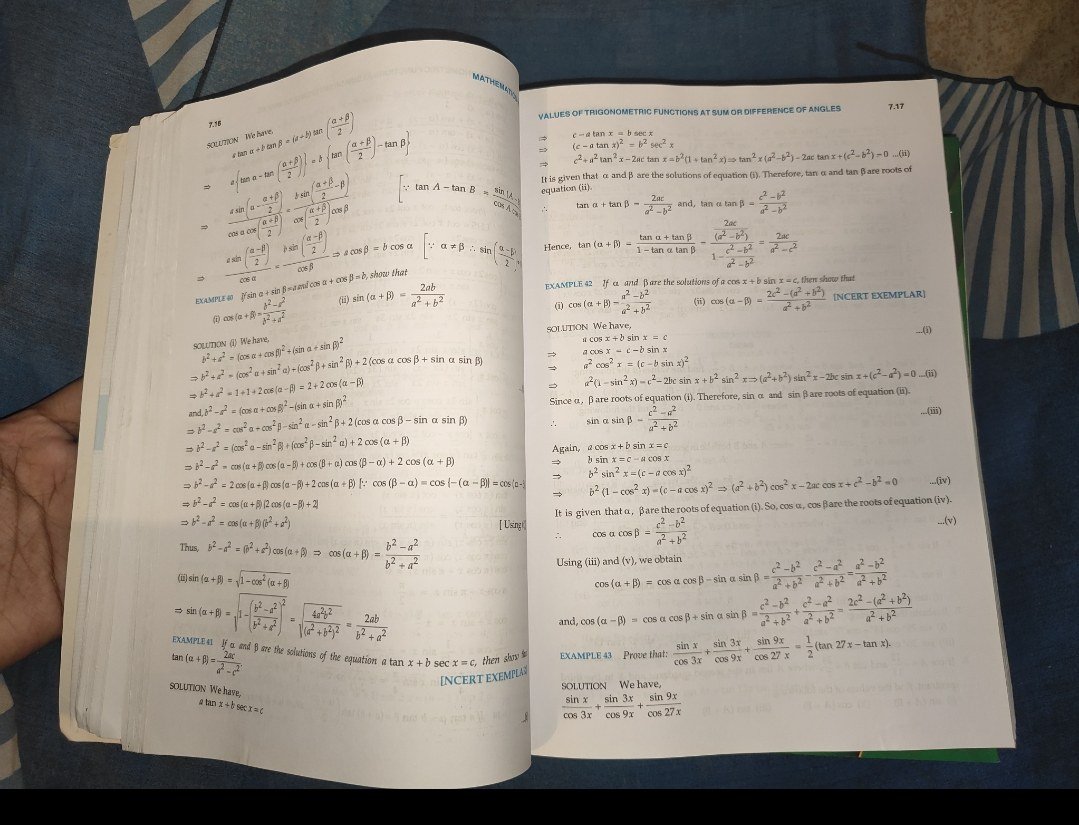 7.16
MATHEMATIC
SOLUTION We have,
a tan α + b tan β = (a + b) tan ((α + β)/2)
⇒ a{tan α − tan ((α + β)/2)} = b {tan ((α + β)/2) − tan β}
⇒ a sin (α − (α + β)/2) / (cos α cos ((α + β)/2)) = b sin ((α + β)/2 − β) / (cos ((α + β)/2) cos β) [∵ tan A − tan B = sin (A − / cos A
⇒ a sin ((α − β)/2) / cos α = b sin ((α − β)/2) / cos β ⇒ a cos β = b cos α [∵ α ≠ β ∴ sin ((α − β)/2)
EXAMPLE 40 If sin α + sin β = a and cos α + cos β = b, show that
(i) cos (α + β) = (b² − a²)/(b² + a²) (ii) sin (α + β) = 2ab/(a² + b²)
SOLUTION (i) We have,
b² + a² = (cos α + cos β)² + (sin α + sin β)²
⇒ b² + a² = (cos² α + sin² α) + (cos² β + sin² β) + 2 (cos α cos β + sin α sin β)
⇒ b² + a² = 1 + 1 + 2 cos (α − β) = 2 + 2 cos (α − β)
and, b² − a² = (cos α + cos β)² − (sin α + sin β)²
⇒ b² − a² = cos² α + cos² β − sin² α − sin² β + 2 (cos α cos β − sin α sin β)
⇒ b² − a² = (cos² α − sin² β) + (cos² β − sin² α) + 2 cos (α + β)
⇒ b² − a² = cos (α + β) cos (α − β) + cos (β + α) cos (β − α) + 2 cos (α + β)
⇒ b² − a² = 2 cos (α + β) cos (α − β) + 2 cos (α + β) [∵ cos (β − α) = cos {− (α − β)} = cos (α −
⇒ b² − a² = cos (α + β) {2 cos (α − β) + 2}
⇒ b² − a² = cos (α + β) (b² + a²) [Using
Thus, b² − a² = (b² + a²) cos (α + β) ⇒ cos (α + β) = (b² − a²)/(b² + a²)
(ii) sin (α + β) = √(1 − cos² (α + β))
⇒ sin (α + β) = √(1 − ((b² − a²)/(b² + a²))²) = √(4a²b²/(a² + b²)²) = 2ab/(b² + a²)
EXAMPLE 41 If α and β are the solutions of the equation a tan x + b sec x = c, then show
tan (α + β) = 2ac/(a² − c²)
[NCERT EXEMPLA
SOLUTION We have,
a tan x + b sec x = c
VALUES OF TRIGONOMETRIC FUNCTIONS AT SUM OR DIFFERENCE OF ANGLES 7.17
⇒ c − a tan x = b sec x
⇒ (c − a tan x)² = b² sec² x
⇒ c² + a² tan² x − 2ac tan x = b²(1 + tan² x) ⇒ tan² x (a² − b²) − 2ac tan x + (c² − b²) = 0 ...(ii)
It is given that α and β are the solutions of equation (i). Therefore, tan α and tan β are roots of
equation (ii).
∴ tan α + tan β = 2ac/(a² − b²) and, tan α tan β = (c² − b²)/(a² − b²)
Hence, tan (α + β) = (tan α + tan β)/(1 − tan α tan β) = (2ac/(a² − b²))/(1 − (c² − b²)/(a² − b²)) = 2ac/(a² − c²)
EXAMPLE 42 If α and β are the solutions of a cos x + b sin x = c, then show that
(i) cos (α + β) = (a² − b²)/(a² + b²) (ii) cos (α − β) = (2c² − (a² + b²))/(a² + b²) [NCERT EXEMPLAR]
SOLUTION We have,
a cos x + b sin x = c ...(i)
⇒ a cos x = c − b sin x
⇒ a² cos² x = (c − b sin x)²
⇒ a²(1 − sin² x) = c² − 2bc sin x + b² sin² x ⇒ (a² + b²) sin² x − 2bc sin x + (c² − a²) = 0 ...(ii)
Since α, β are roots of equation (i). Therefore, sin α and sin β are roots of equation (ii).
∴ sin α sin β = (c² − a²)/(a² + b²) ...(iii)
Again, a cos x + b sin x = c
⇒ b sin x = c − a cos x
⇒ b² sin² x = (c − a cos x)²
⇒ b² (1 − cos² x) = (c − a cos x)² ⇒ (a² + b²) cos² x − 2ac cos x + c² − b² = 0 ...(iv)
It is given that α, β are the roots of equation (i). So, cos α, cos β are the roots of equation (iv).
∴ cos α cos β = (c² − b²)/(a² + b²) ...(v)
Using (iii) and (v), we obtain
cos (α + β) = cos α cos β − sin α sin β = (c² − b²)/(a² + b²) − (c² − a²)/(a² + b²) = (a² − b²)/(a² + b²)
and, cos (α − β) = cos α cos β + sin α sin β = (c² − b²)/(a² + b²) + (c² − a²)/(a² + b²) = (2c² − (a² + b²))/(a² + b²)
EXAMPLE 43 Prove that: sin x/cos 3x + sin 3x/cos 9x + sin 9x/cos 27 x = 1/2 (tan 27 x − tan x).
SOLUTION We have,
sin x/cos 3x + sin 3x/cos 9x + sin 9x/cos 27 x